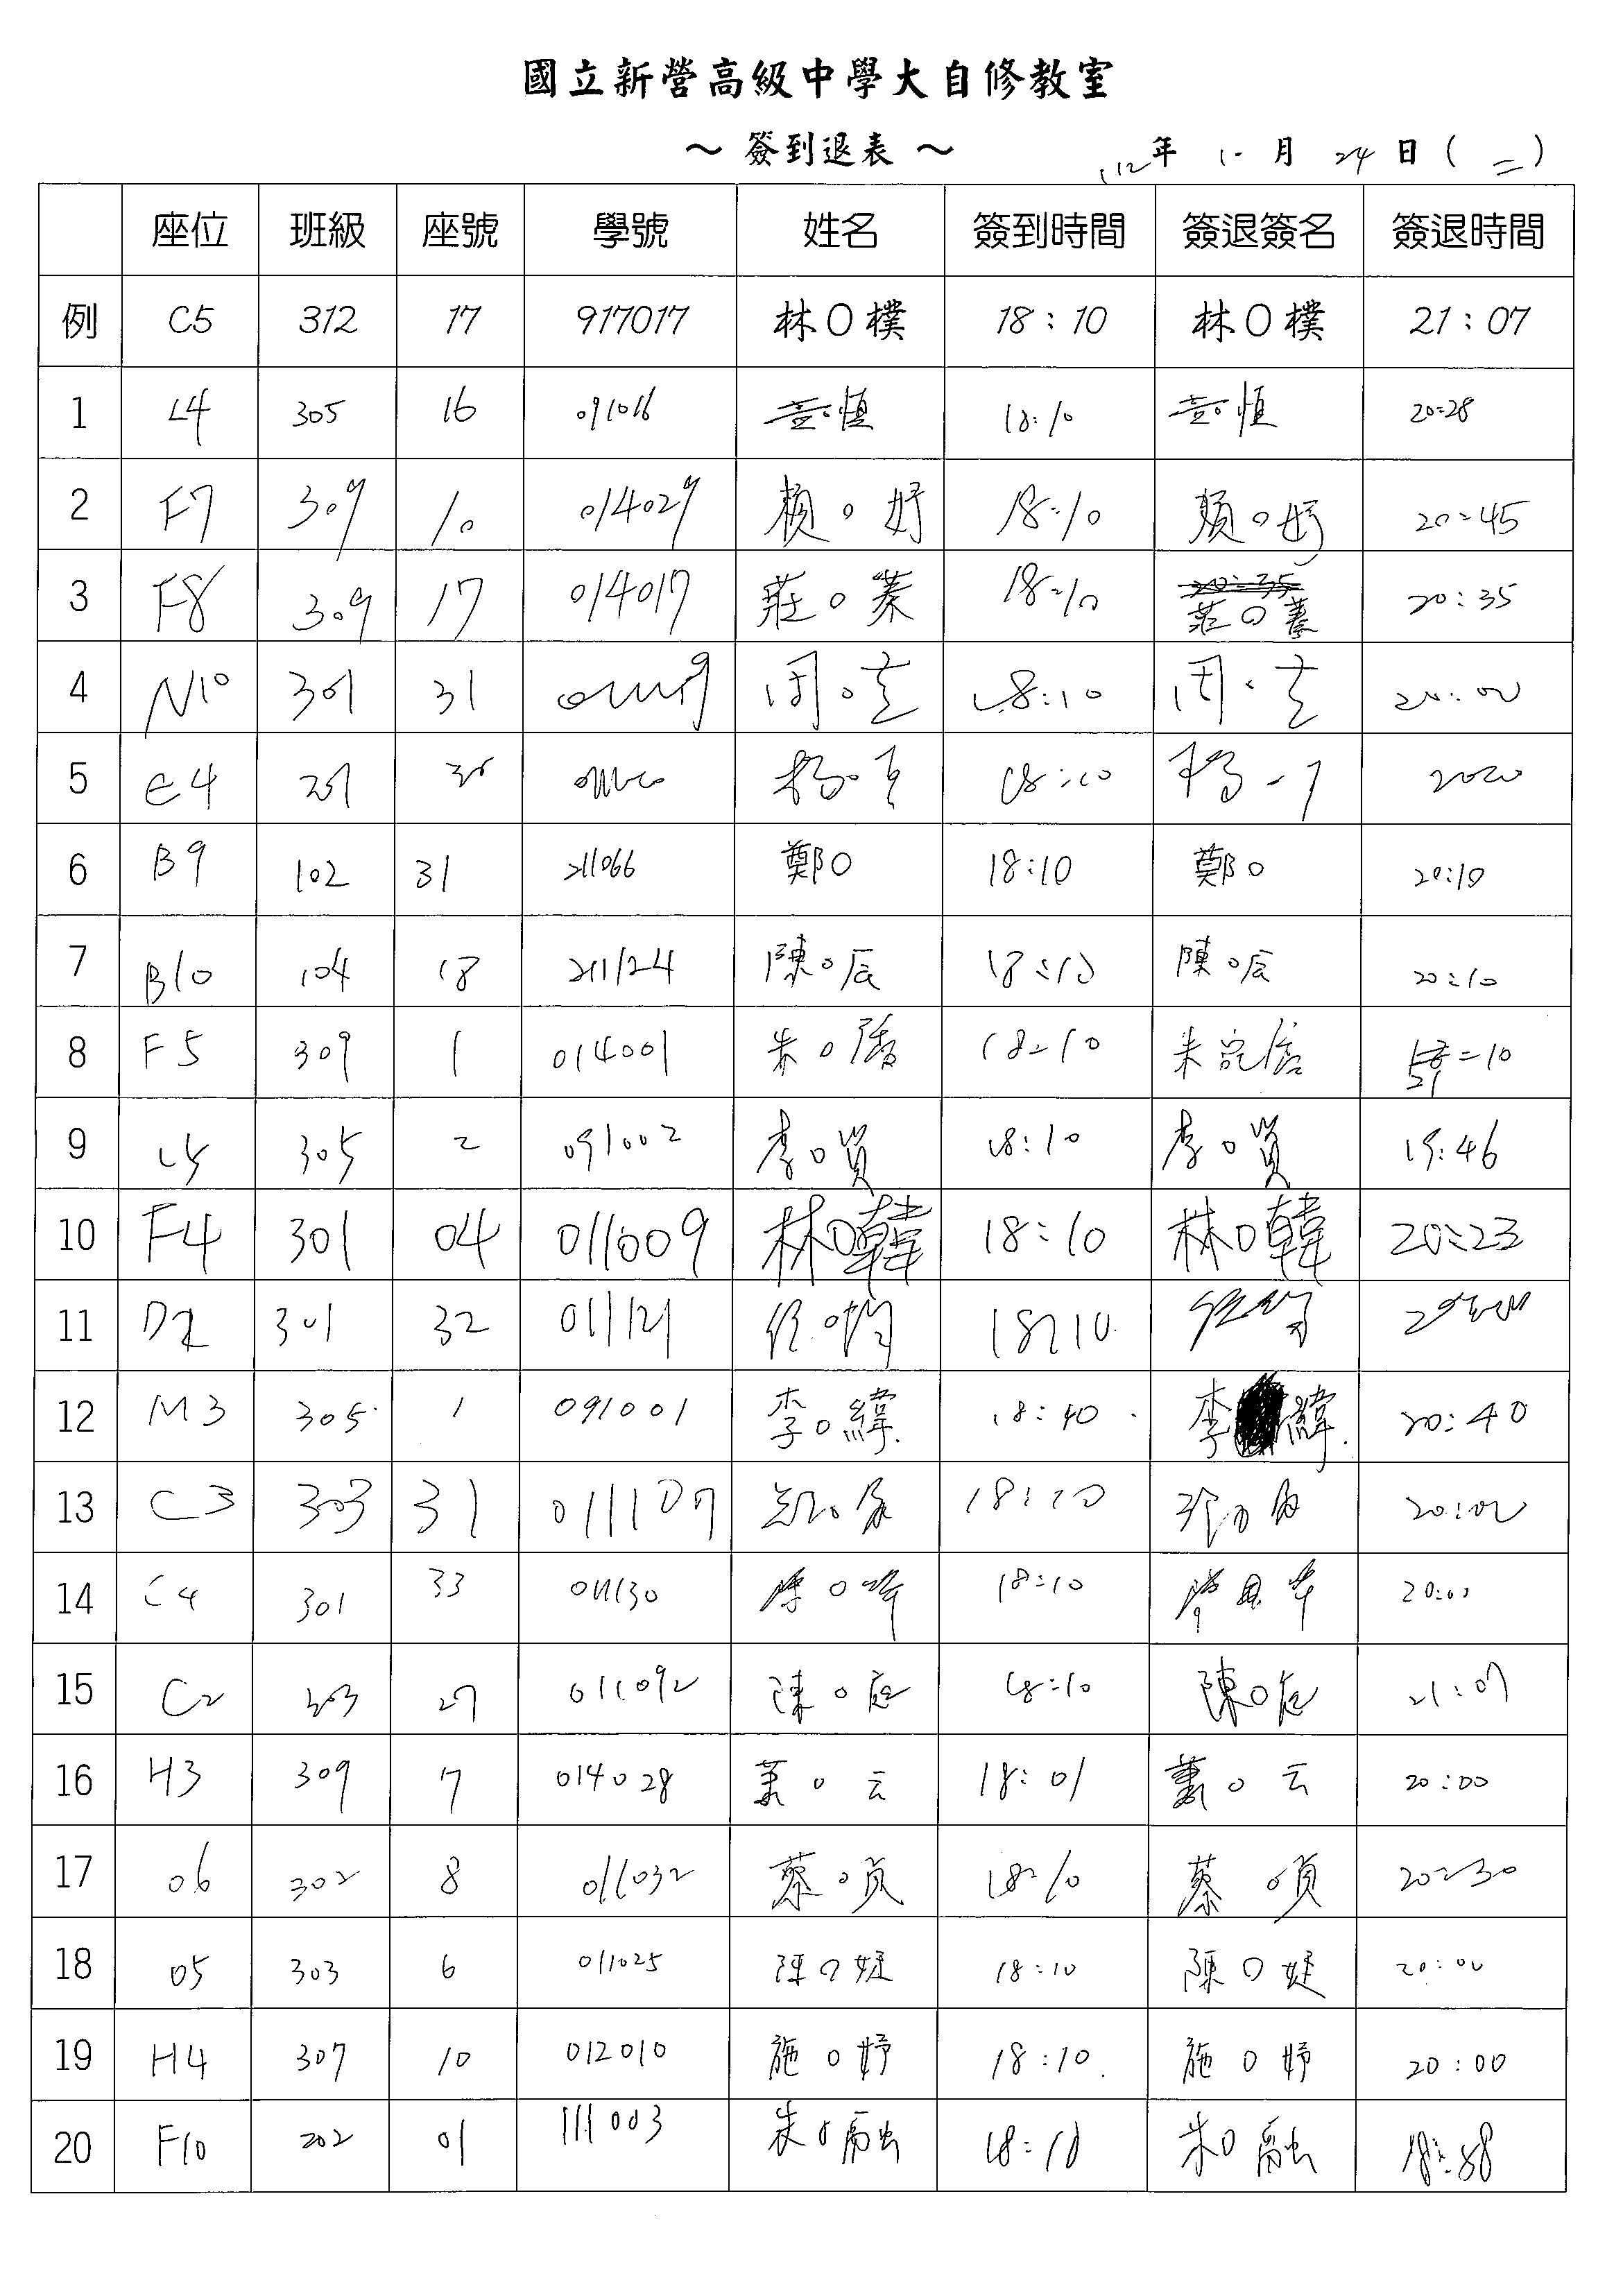 國立新營高級中學大自修教室
～ 簽到退表 ～ 112年 10月 24日(二)
座位 班級 座號 學號 姓名 簽到時間 簽退簽名 簽退時間
例 C5 312 17 917017 林O樸 18:10 林O樸 21:07
1 L4 305 16 091016 18:10 20:28
2 F7 309 10 014029 賴O妤 18:10 賴O妤 20:45
3 F8 309 17 014017 莊O蓁 18:10 莊O蓁 20:35
4 N10 301 31 周 18:10 周 20:00
5 E4 楊 18:10 楊 2020
6 B9 102 31 211066 鄭O 18:10 鄭O 20:10
7 B10 104 18 211124 陳O辰 18:10 陳O辰 20:10
8 F5 309 1 014001 朱O 18:10 朱 21:10
9 L5 305 2 091002 李O質 18:10 李O質 19:46
10 F4 301 04 011009 林O韓 18:10 林O韓 20:23
11 301 32 011121 18:10
12 M3 305 1 091001 李O緯 18:40 李 緯 20:40
13 C3 303 31 011107 18:10 20:00
14 C4 301 33 011130 18:10 20:00
15 C2 303 27 011092 陳O庭 18:10 陳O庭 21:07
16 H3 309 7 014028 蕭O云 18:01 蕭O云 20:00
17 O6 302 8 011032 蔡O貞 18:10 蔡O貞 20:30
18 O5 303 6 011025 陳O婕 18:10 陳O婕 20:00
19 H4 307 10 012010 施O妤 18:10 施O妤 20:00
20 F10 202 01 111003 朱O融 18:10 朱O融